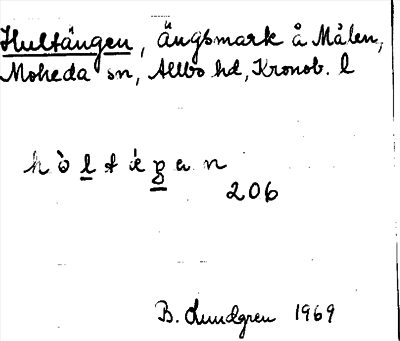 Hultängen, Ängsmark å Målen,
Moheda sn, Allbo hd, Kronob. l
206
B. Lundgren 1969